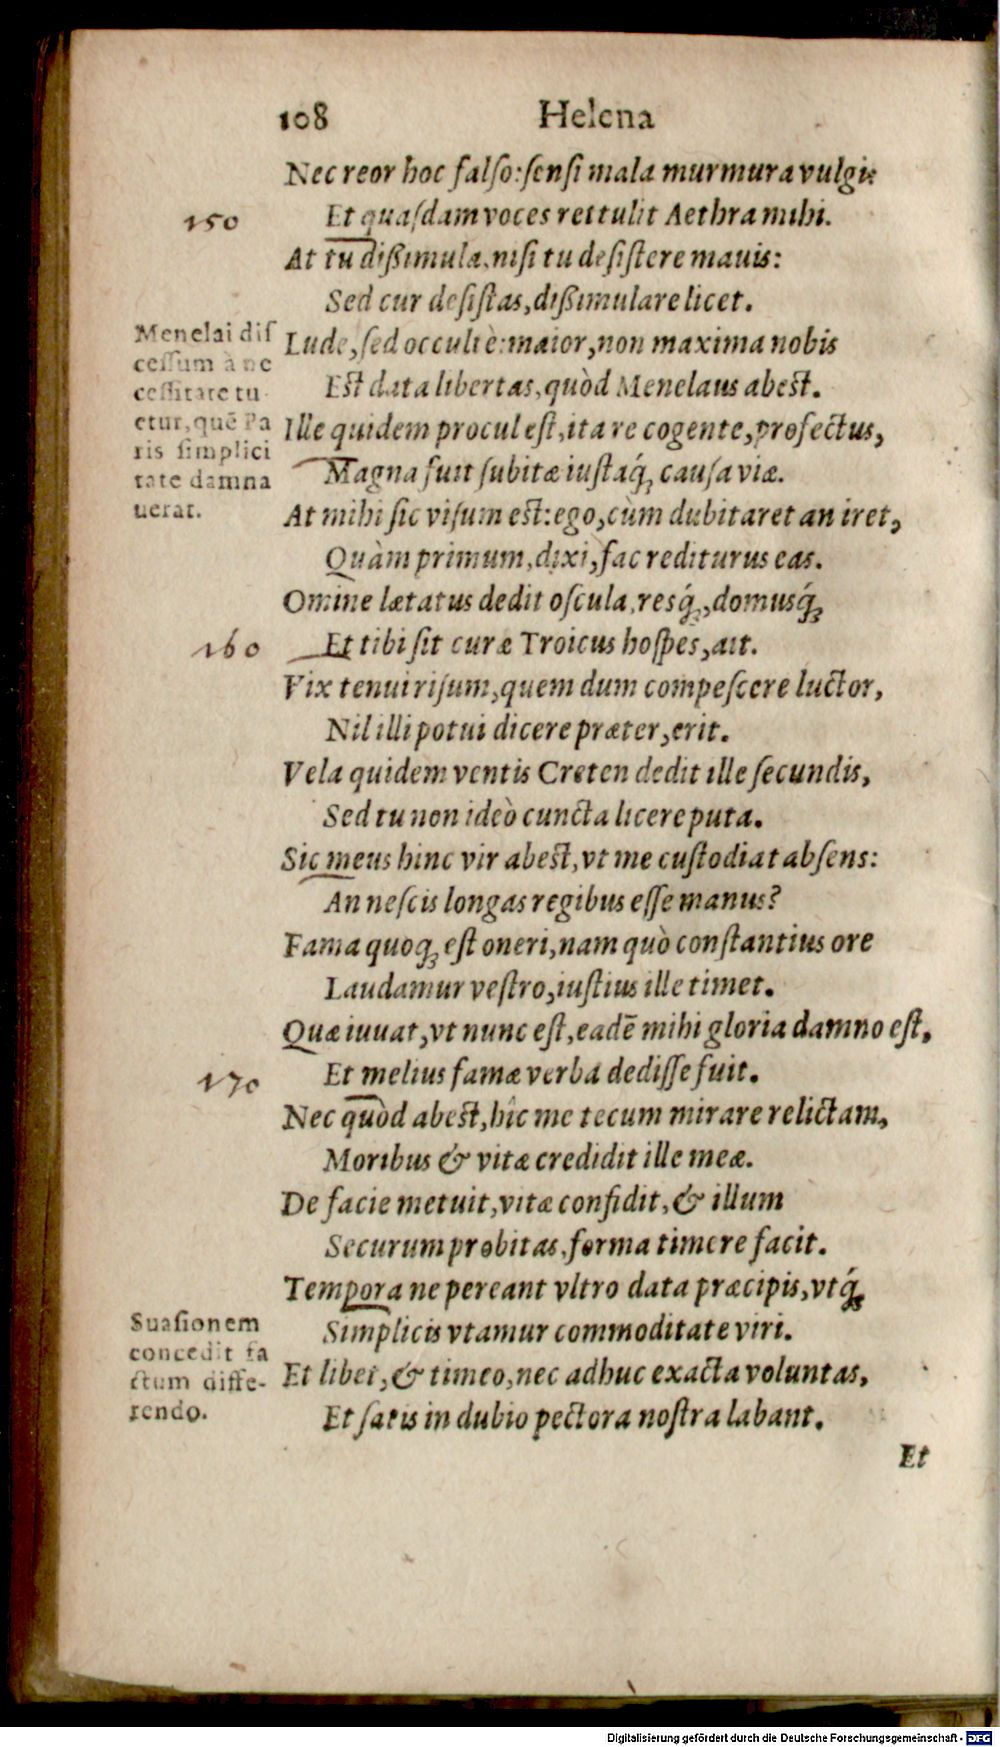 108 Helena
Nec reor hoc falso: sensi mala murmura vulgi:
150
Et quasdam voces rettulit Aethra mihi.
At tu dißimula, nisi tu desistere mauis:
Sed cur desistas, dißimulare licet.
Menelai dis
cessum à ne
cessitate tu
etur, quē Pa
ris simplici
tate damna
uerat.
Lude, sed occultè: maior, non maxima nobis
Est data libertas, quòd Menelaus abest.
Ille quidem procul est, ita re cogente, profectus,
Magna fuit subitæ iustaq́; causa viæ.
At mihi sic visum est: ego, cùm dubitaret an iret,
Quàm primum, dixi, fac rediturus eas.
Omine lætatus dedit oscula, resq́;, domusq́;
160
Et tibi sit curæ Troicus hospes, ait.
Vix tenui risum, quem dum compescere luctor,
Nil illi potui dicere præter, erit.
Vela quidem ventis Creten dedit ille secundis,
Sed tu non ideò cuncta licere puta.
Sic meus hinc vir abest, vt me custodiat absens:
An nescis longas regibus esse manus?
Fama quoq; est oneri, nam quò constantius ore
Laudamur vestro, iustius ille timet.
Quæ iuuat, vt nunc est, eadē mihi gloria damno est,
170
Et melius famæ verba dedisse fuit.
Nec quòd abest, hîc me tecum mirare relictam,
Moribus & vitæ credidit ille meæ.
De facie metuit, vitæ confidit, & illum
Securum probitas, forma timere facit.
Tempora ne pereant vltro data præcipis, vtq́;
Suasionem
concedit fa
ctum diffe-
rendo.
Simplicis vtamur commoditate viri.
Et libet, & timeo, nec adhuc exacta voluntas,
Et satis in dubio pectora nostra labant.
Et
Digitalisierung gefördert durch die Deutsche Forschungsgemeinschaft - DFG